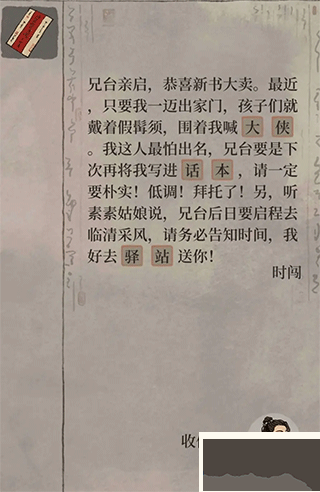 兄台亲启，恭喜新书大卖。最近
，只要我一迈出家门，孩子们就
戴着假髯须，围着我喊大侠
。我这人最怕出名，兄台要是下
次再将我写进话本，请一定
要朴实！低调！拜托了！另，听
素素姑娘说，兄台后日要启程去
临清采风，请务必告知时间，我
好去驿站送你！
时闯
收